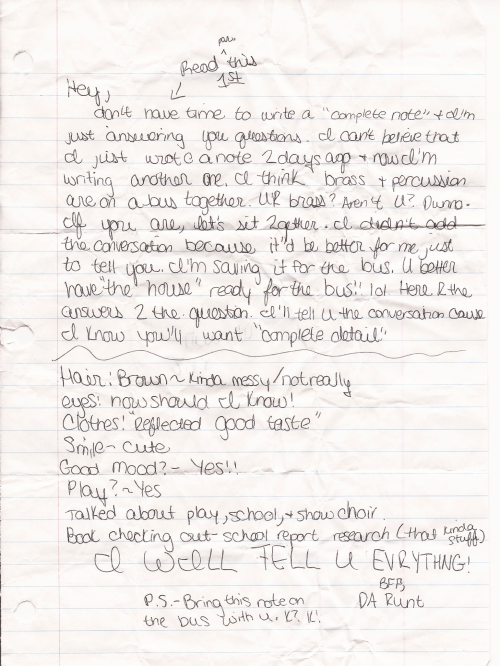 Read this
1st
Hey,
don't have time to write a "complete note" + I'm
just answering you questions. I can't believe that
I just wrote a note 2 days ago + now I'm
writing another one. I think brass + percussion
are on a bus together. UR brass? Aren't U? Dunno.
If you are, let's sit 2gether. I didn't add
the conversation because it'd be better for me just
to tell you. I'm saving it for the bus. U better
have "the house" ready for the bus!! lol Here R the
answers 2 the question. I'll tell U the conversation cause
I know you'll want "complete detail."
Hair: Brown ~ kinda messy/not really
eyes: how should I know!
Clothes: "Reflected good taste"
Smile ~ cute
Good Mood? ~ Yes!!
Play? ~ Yes
Talked about play, school, + show choir.
Book checking out - school report research (that kinda stuff)
I WILL TELL U EVRYTHNG!
BFF,
DA Runt
P.S. - Bring this note on
the bus with u. K? K!